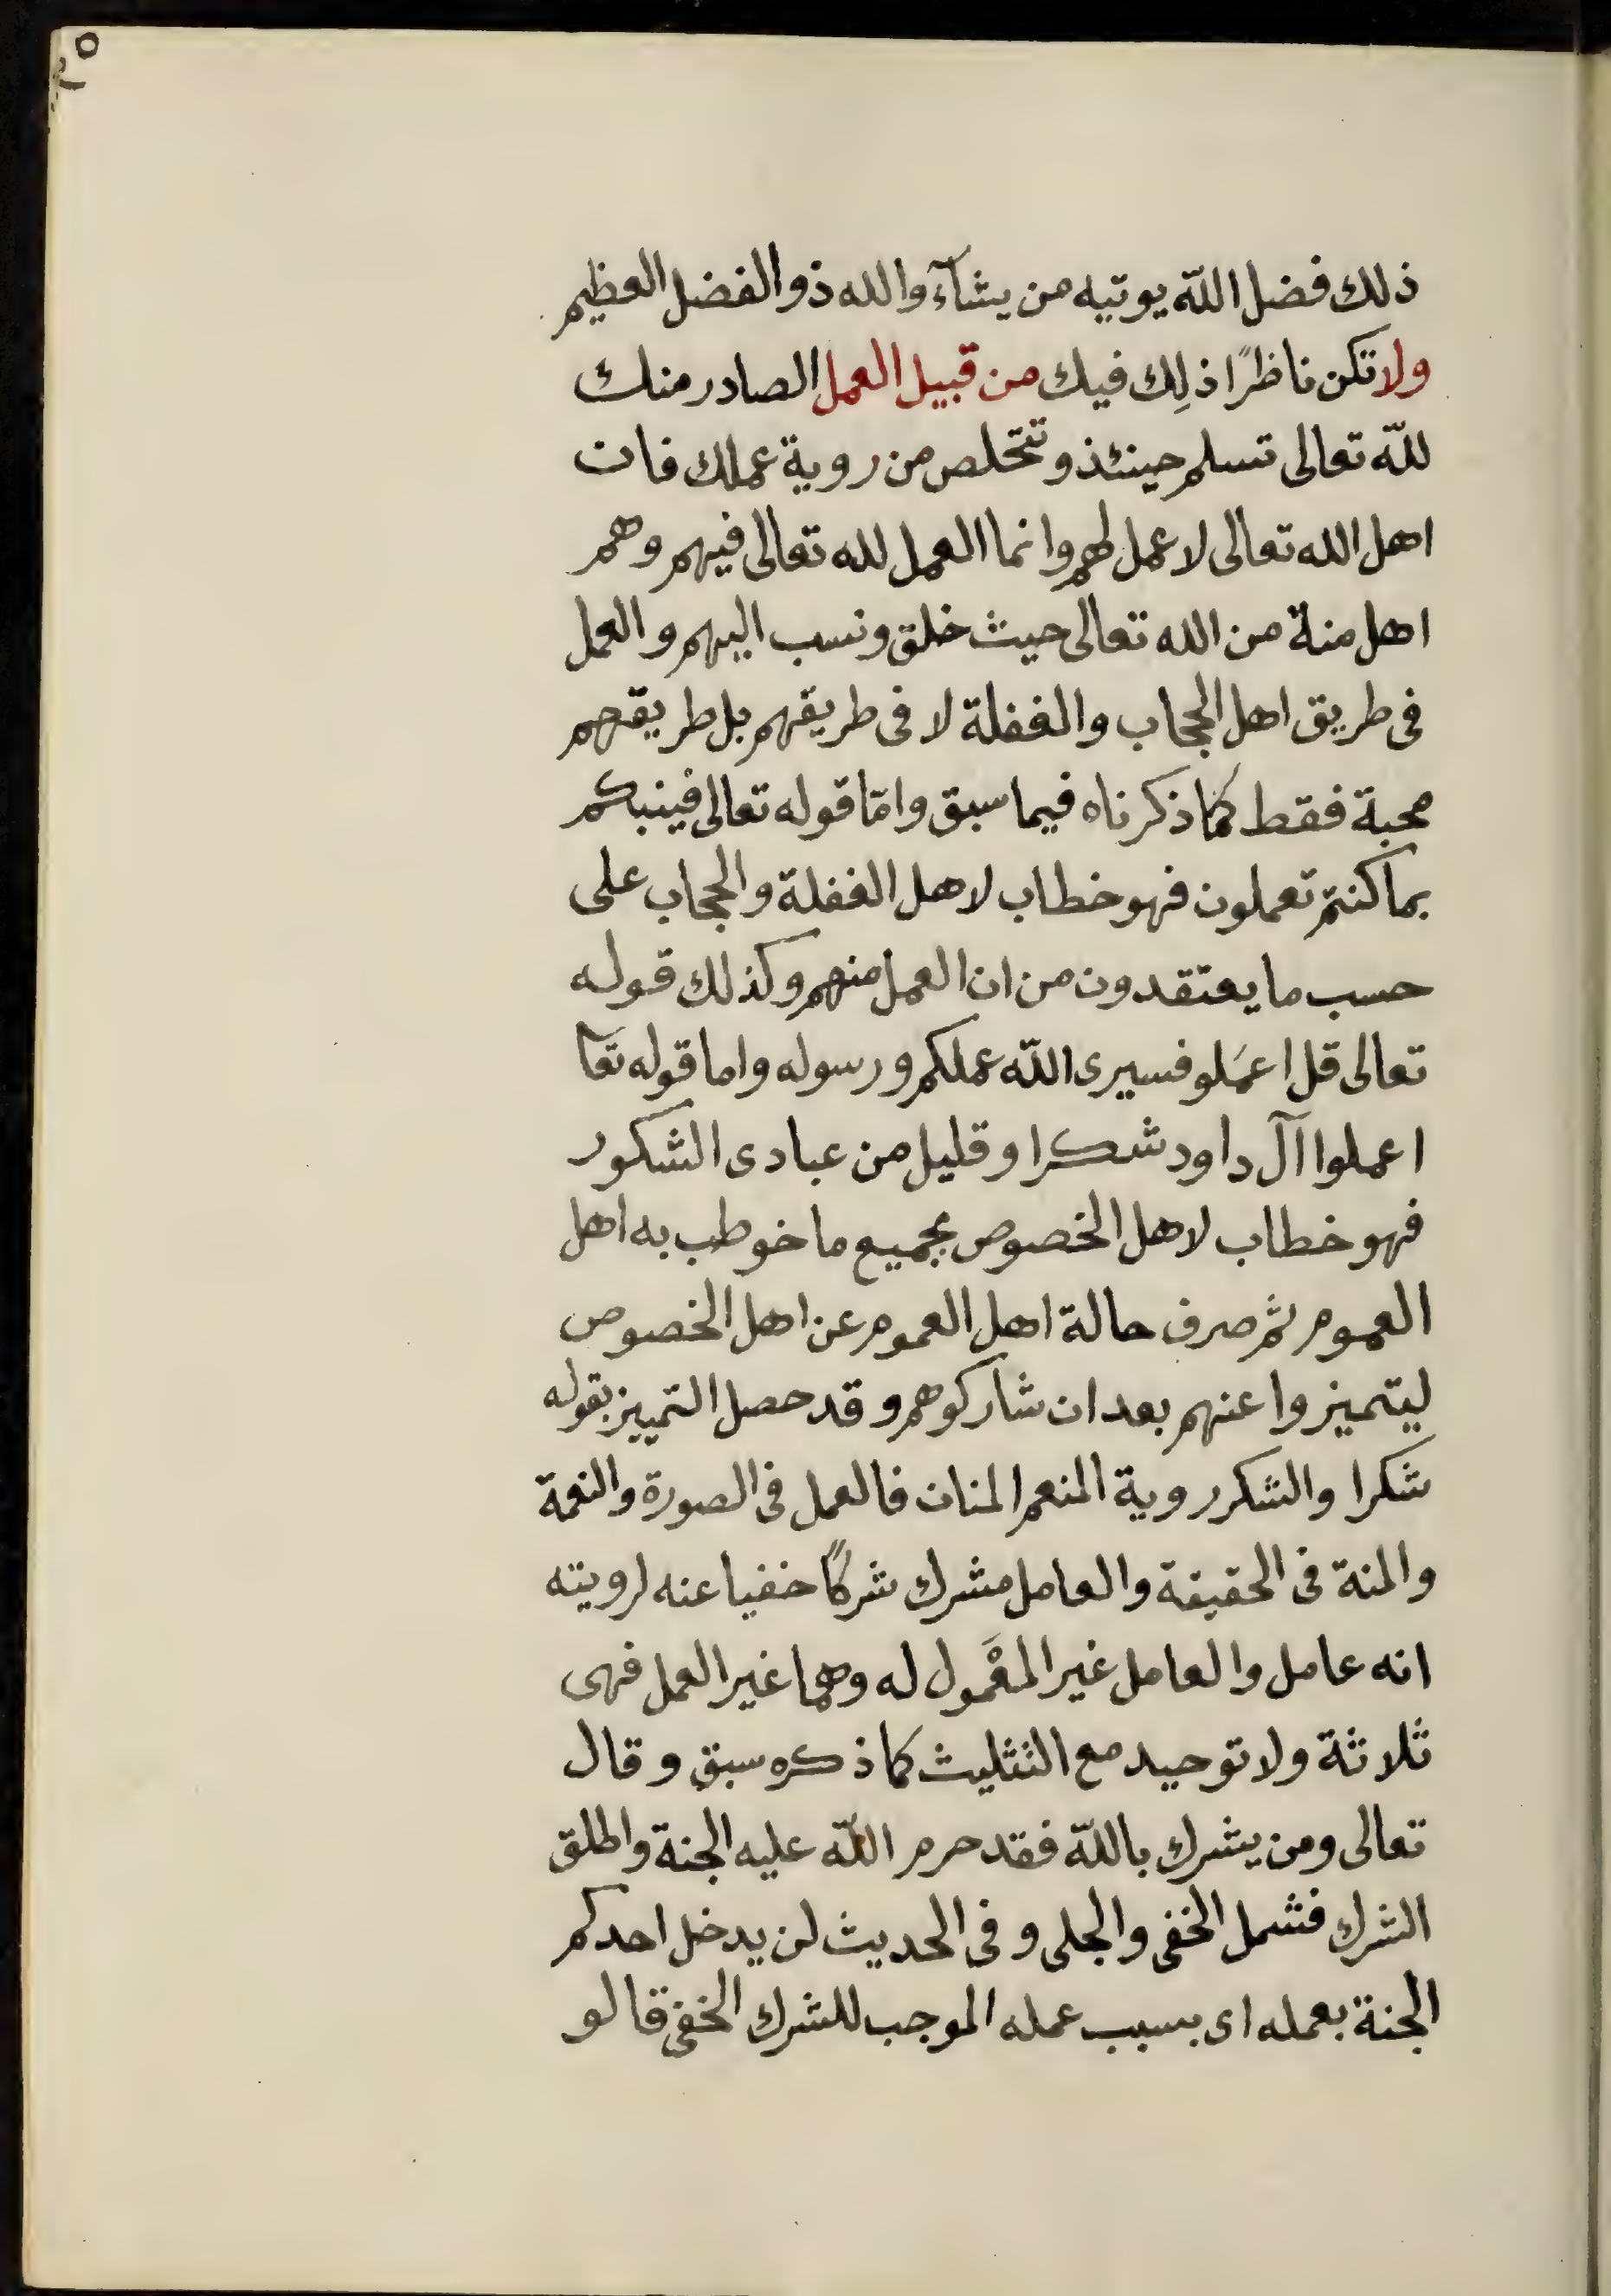 ذلك فضل اللّه يوتيه من يشآء والله ذو الفضل العظيم
ولا تكن ناظرًا ذلِك فيك من قبيل العمل الصادر منك
للّه تعالى تسلم حينئذ وتتخلص من روية عملك فان
اهل الله تعالى لا عمل لهم وانما العمل لله تعالى فيهم وهم
اهل منة من الله تعالى حيث خلق ونسب اليهم والعمل
فى طريق اهل الحجاب والغفلة لا فى طريقهم بل طريقهم
محبة فقط كما ذكرناه فيما سبق وامّا قوله تعالى فينبكم
بما كنتم تعملون فهو خطاب لاهل الغفلة والحجاب على
حسب ما يعتقدون من ان العمل منهم وكذلك قوله
تعالى قل اعمَلو فسيرى اللّه عملكم ورسوله واما قوله تعا
اعملوا آل داود شكرا وقليل من عبادى الشكور
فهو خطاب لاهل الخصوص بجميع ما خوطب به اهل
العموم ثم صرف حالة اهل العموم عن اهل الخصوص
ليتميزوا عنهم بعد ان شاركوهم وقد حصل التمييز بقوله
شكرا والشكر روية المنعم المنان فالعمل فى الصورة والنعمة
والمنة فى الحقيقة والعامل مشرك شركًا خفيا عنه لرويته
انه عامل والعامل غير المعْمول له وهما غير العمل فهى
ثلاثة ولا توحيد مع التثليث كما ذكره سبق وقال
تعالى ومن يشرك باللّه فقد حرم اللّه عليه الجنة واطلق
الشرك فشمل الخفى والجلى وفى الحديث لن يدخل احدكم
الجنة بعمله اى بسبب عمله الموجب للشرك الخفى قالو